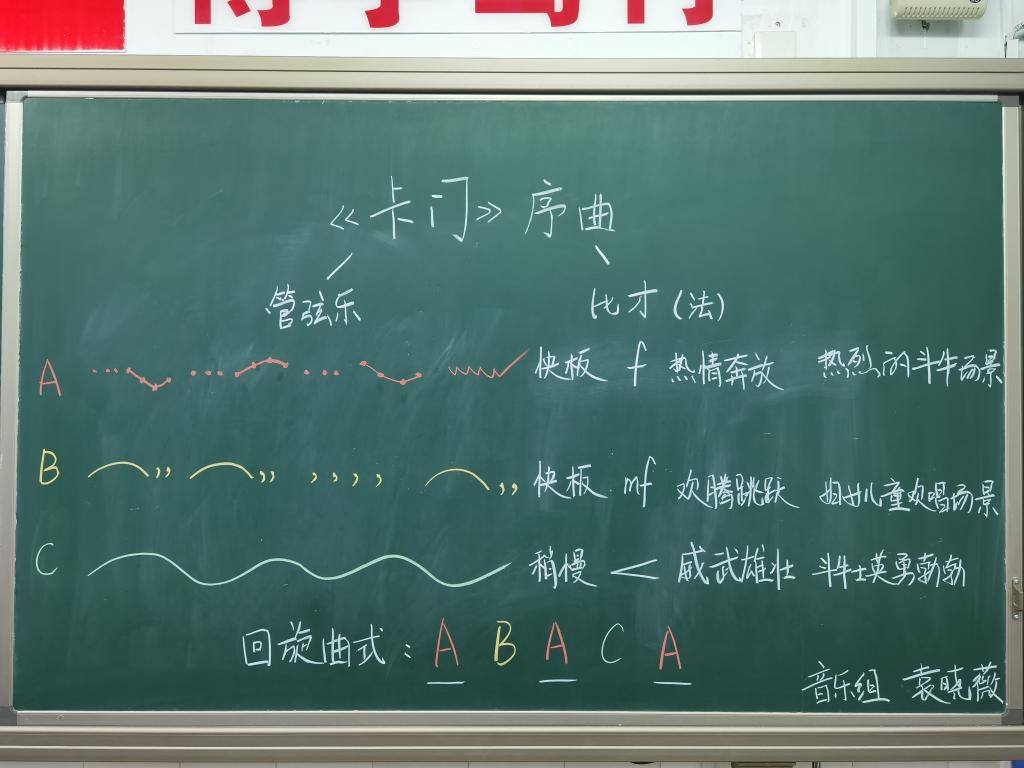 《卡门》序曲
管弦乐 比才(法)
A 快板 f 热情奔放 热烈的斗牛场景
B 快板 mf 欢腾跳跃 妇女儿童欢唱场景
C 稍慢 < 威武雄壮 斗牛士英勇勃勃
回旋曲式: A B A C A
音乐组 袁晓薇